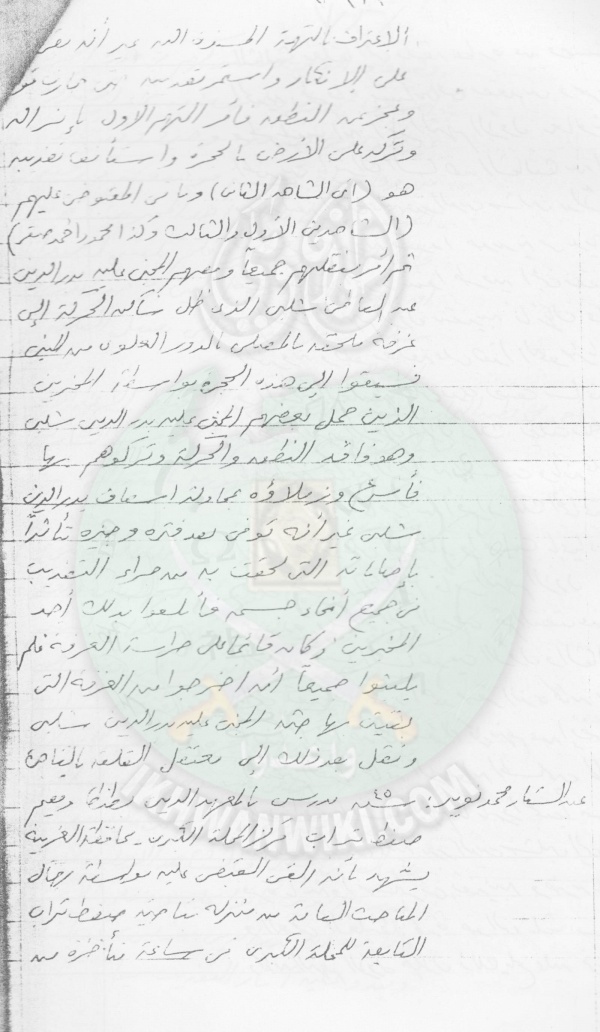 الاعتراف بالتهمة المسندة إليه غير أنه
على الإنكار واستمر تعذيبه
وعجز عن النطق فأمر المتهم الأول بإنزاله
وتركه على الأرض بالحجرة واستأنف تعذيبه
هو (أى الشاهد الثانى) وباقى المقبوض عليهم
(الشاهدين الأول والثالث وكذا محمود أحمد صقر)
ثم أمر بنقلهم جميعاً ومعهم المجنى عليه بدر الدين
عبد العاطى شلبى الذى ظل ساكن الحركة إلى
غرفة ملحقة بالمصلى بالدور العلوى من المبنى
فسيقوا إلى هذه الحجرة بواسطة المخبرين
الذين حمل بعضهم المجنى عليه بدر الدين شلبى
وهو فاقد النطق والحركة وتركوهم بها
فأسرع وزملاؤه بمحاولة اسعاف بدر الدين
شلبى غير أنه توفى بعد فترة وجيزة تأثراً
بإصاباته التى لحقت به من جراء التعذيب
فى جميع أنحاء جسمه فأبلغوا بذلك أحد
المخبرين وكان قائما على حراسة الغرفة فلم
يلبثوا جميعاً أن أخرجوا من الغرفة التى
بقيت بها جثة المجنى عليه بدر الدين شلبى
ونقل بعد ذلك إلى معتقل القلعة بالقاهرة
عبد الستار محمد نوير: ٤٥ سنة مدرس بالمعهد الدينى بطنطا ويقيم
صفط تراب مركز المحلة الكبرى بمحافظة الغربية
يشهد بأنه ألقى القبض عليه بواسطة رجال
المباحث العامة من منزله بناحية صفط تراب
التابعة للمحلة الكبرى فى ساعة متأخرة من
IKHWANWIKI.COM
وأعدوا